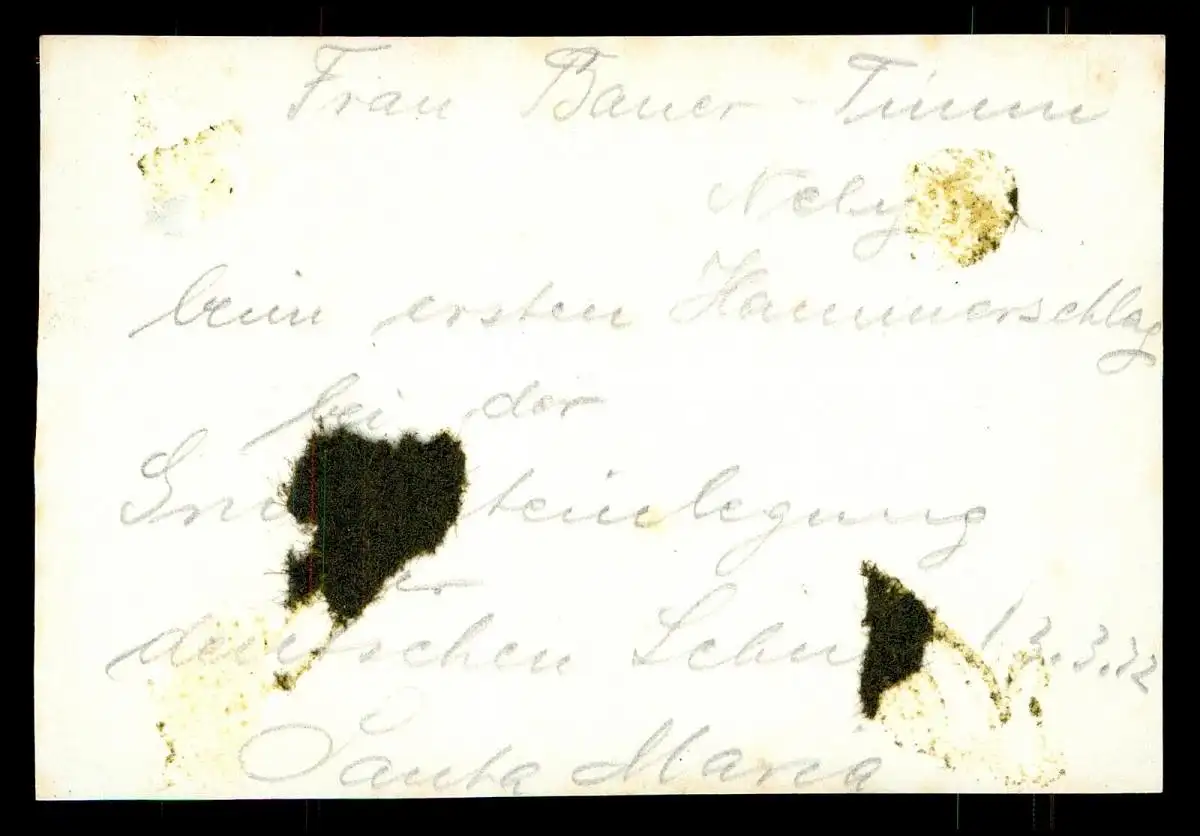 Frau Bauer - Timm
Nely
beim ersten Hammerschlag
bei der
steinlegung
deutschen 13.3.32
Santa Maria